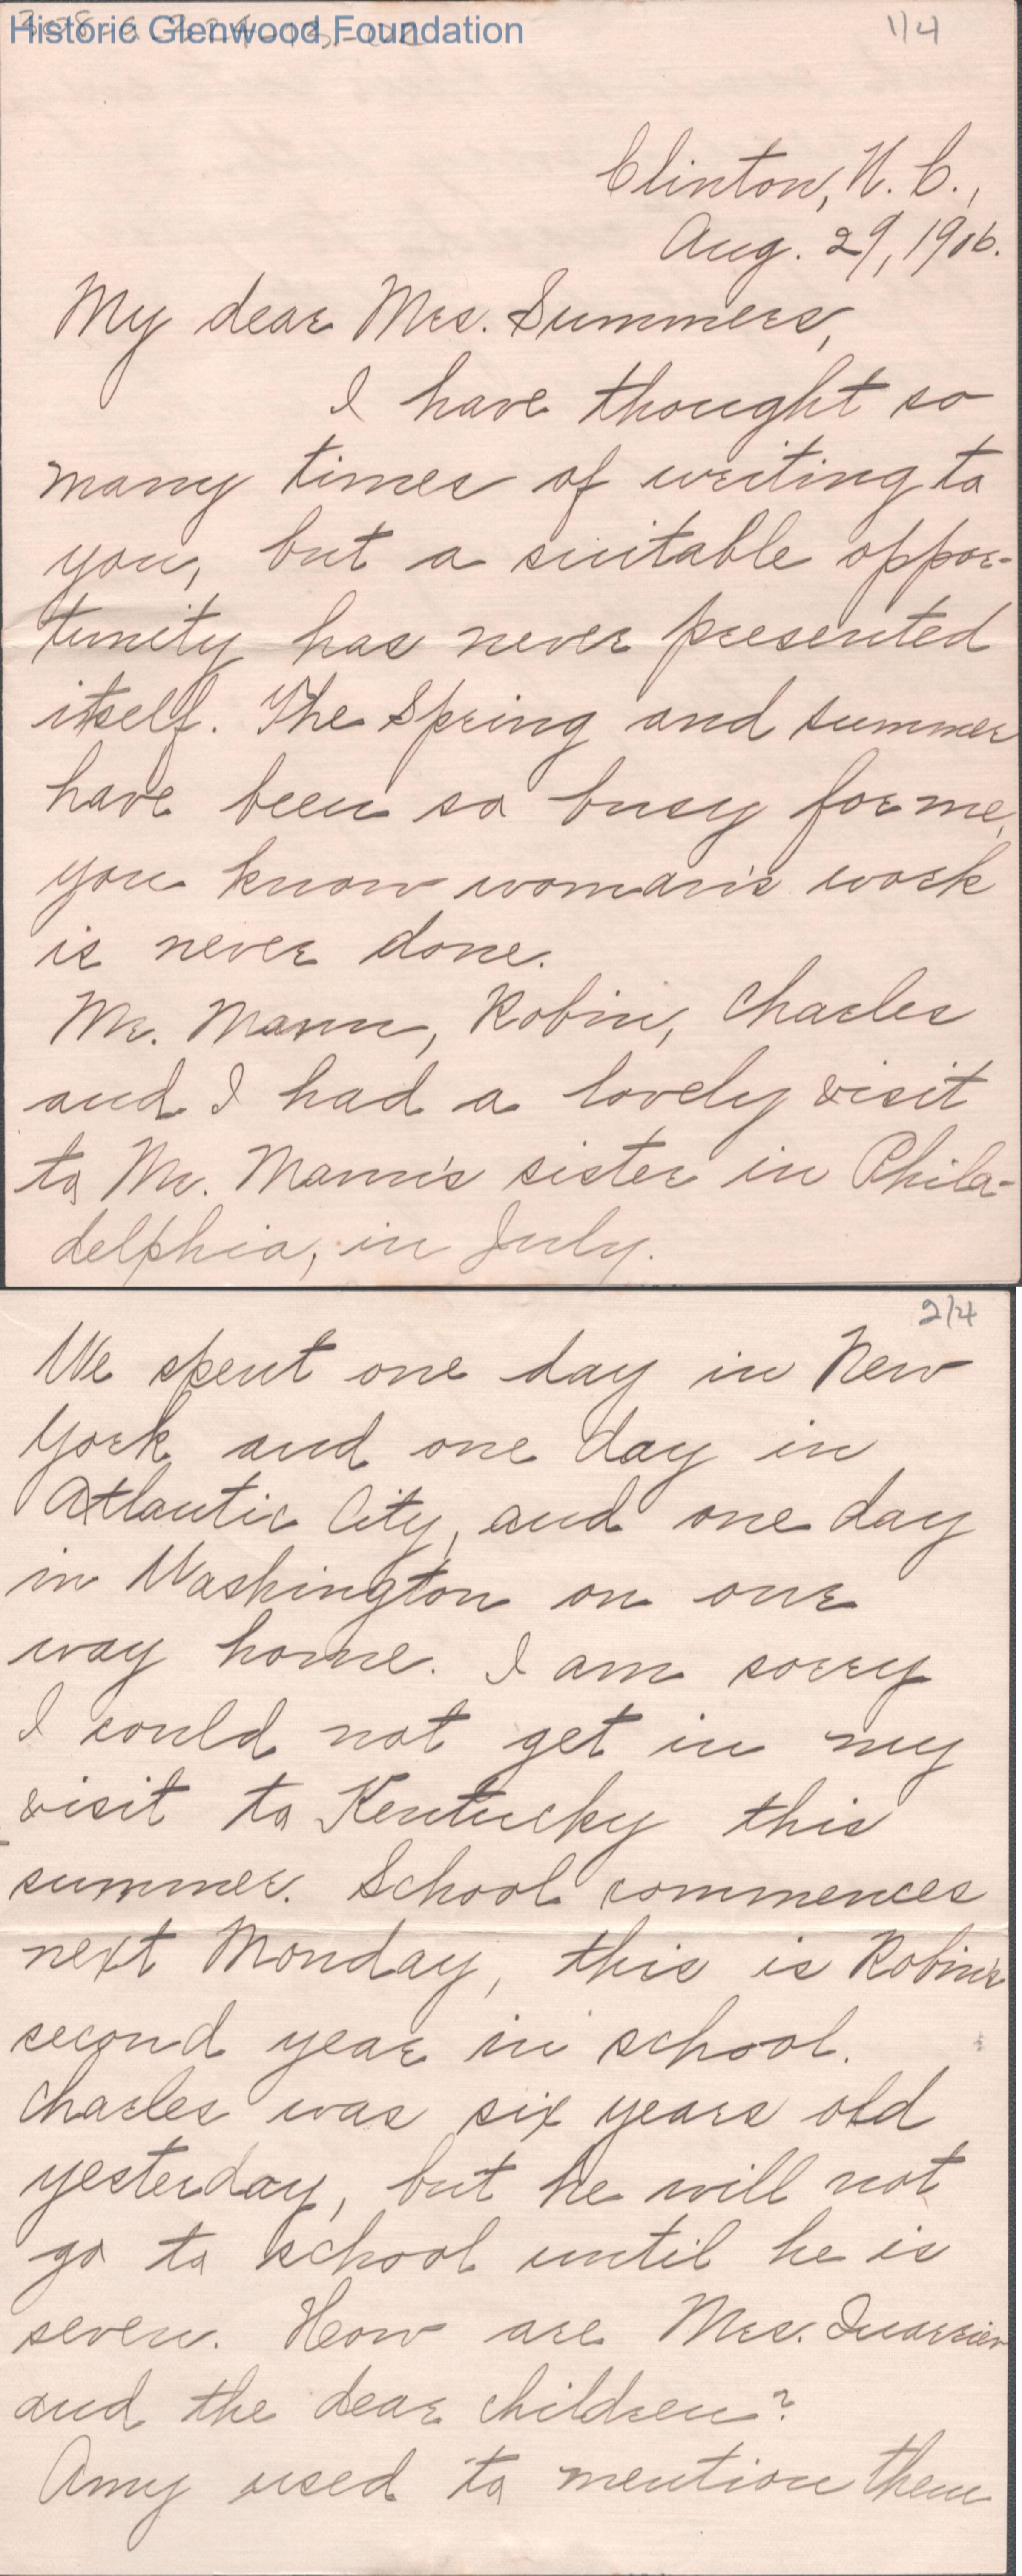 Historic Glenwood Foundation
1/4
Clinton, N. C.,
Aug. 29, 1916.
My dear Mrs. Summers,
I have thought so
many times of writing to
you, but a suitable oppor-
tunity has never presented
itself. The Spring and summer
have been so busy for me,
you know woman's work
is never done.
Mr. Mann, Robin, Charles
and I had a lovely visit
to Mr. Mann's sister in Phila-
delphia, in July.
2/4
We spent one day in New
York and one day in
Atlantic City, and one day
in Washington on our
way home. I am sorry
I could not get in my
visit to Kentucky this
summer. School commences
next Monday, this is Robin's
second year in school.
Charles was six years old
yesterday, but he will not
go to school until he is
seven. How are Mrs. Quarrier
and the dear children?
Amy used to mention them